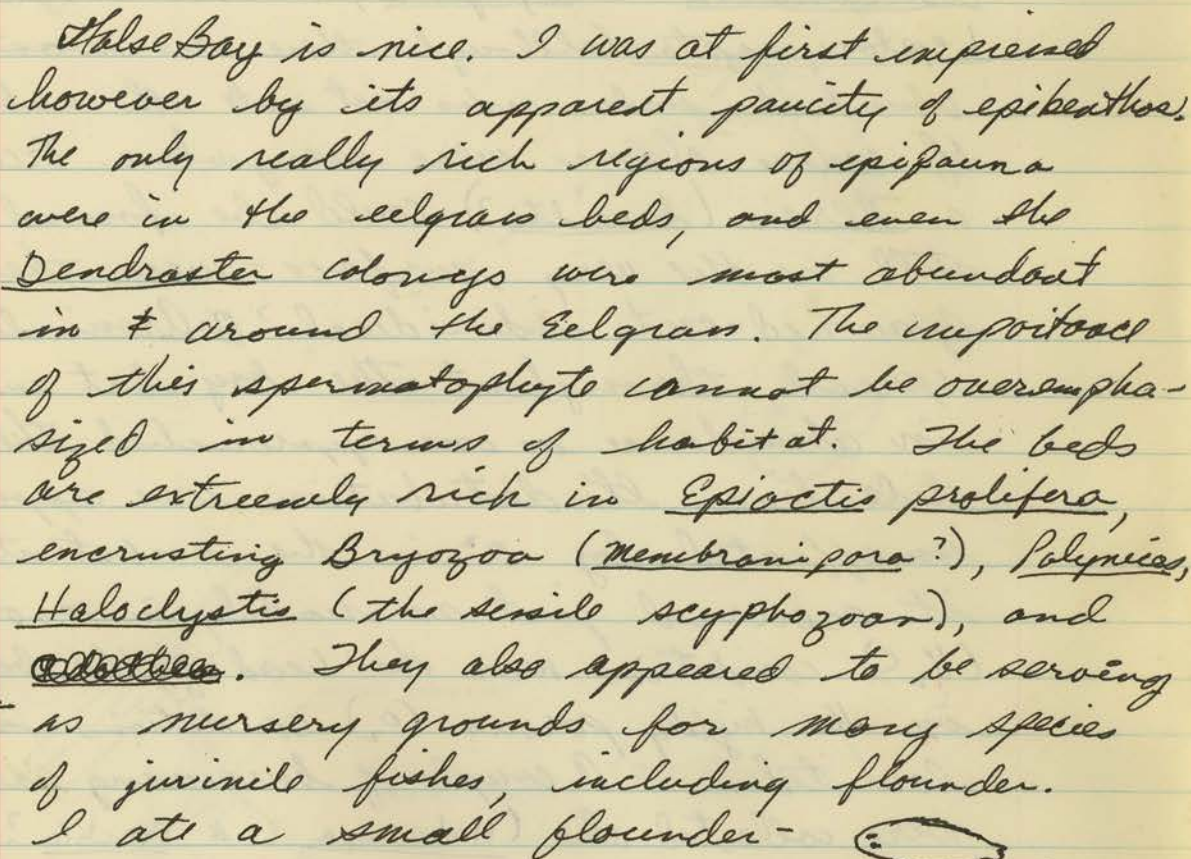 False Bay is nice. I was at first impressed
however by its apparent paucity of epibenthos.
The only really rich regions of epifauna
were in the eelgrass beds, and even the
Dendraster colonys were most abundant
in & around the Eelgrass. The importance
of this spermatophyte cannot be overempha-
sized in terms of habitat. The beds
are extreemly rich in Epiactis prolifera,
encrusting Bryozoa (Membranipora?), Polynices,
Haloclystis (the sessile scyphozoan), and
. They also appeared to be serving
as nursery grounds for many species
of juvinile fishes, including flounder.
I ate a small flounder-